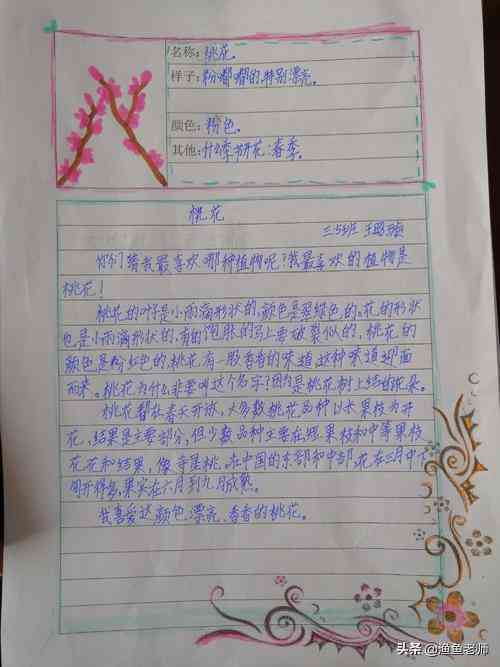 名称:桃花。
样子:粉嘟嘟的,特别漂亮。
颜色:粉色。
其他:什么季节开花:春季。
桃花
三5班
你们猜我最喜欢哪种植物呢?我最喜欢的植物是
桃花!
桃花的叶子是小雨滴形状的,颜色是翠绿色的。花的形状
也是小雨滴形状的,有的饱胀的马上要破裂似的,桃花的
颜色是粉红色的,桃花有一股香香的味道,这种味道迎面
而来。桃花为什么非要叫这个名字?因为是桃花树上结的花朵。
桃花都在春天开放,大多数桃花品种以长果枝为开
花,结果是主要部分,但少数品种主要在短果枝和中等果枝
花花和结果,像寺是桃。在中国的东部和中部,花在三月中下
旬开得多,果实在六月到九月成熟。
我喜爱这颜色漂亮、香香的桃花。
头条@渔鱼老师